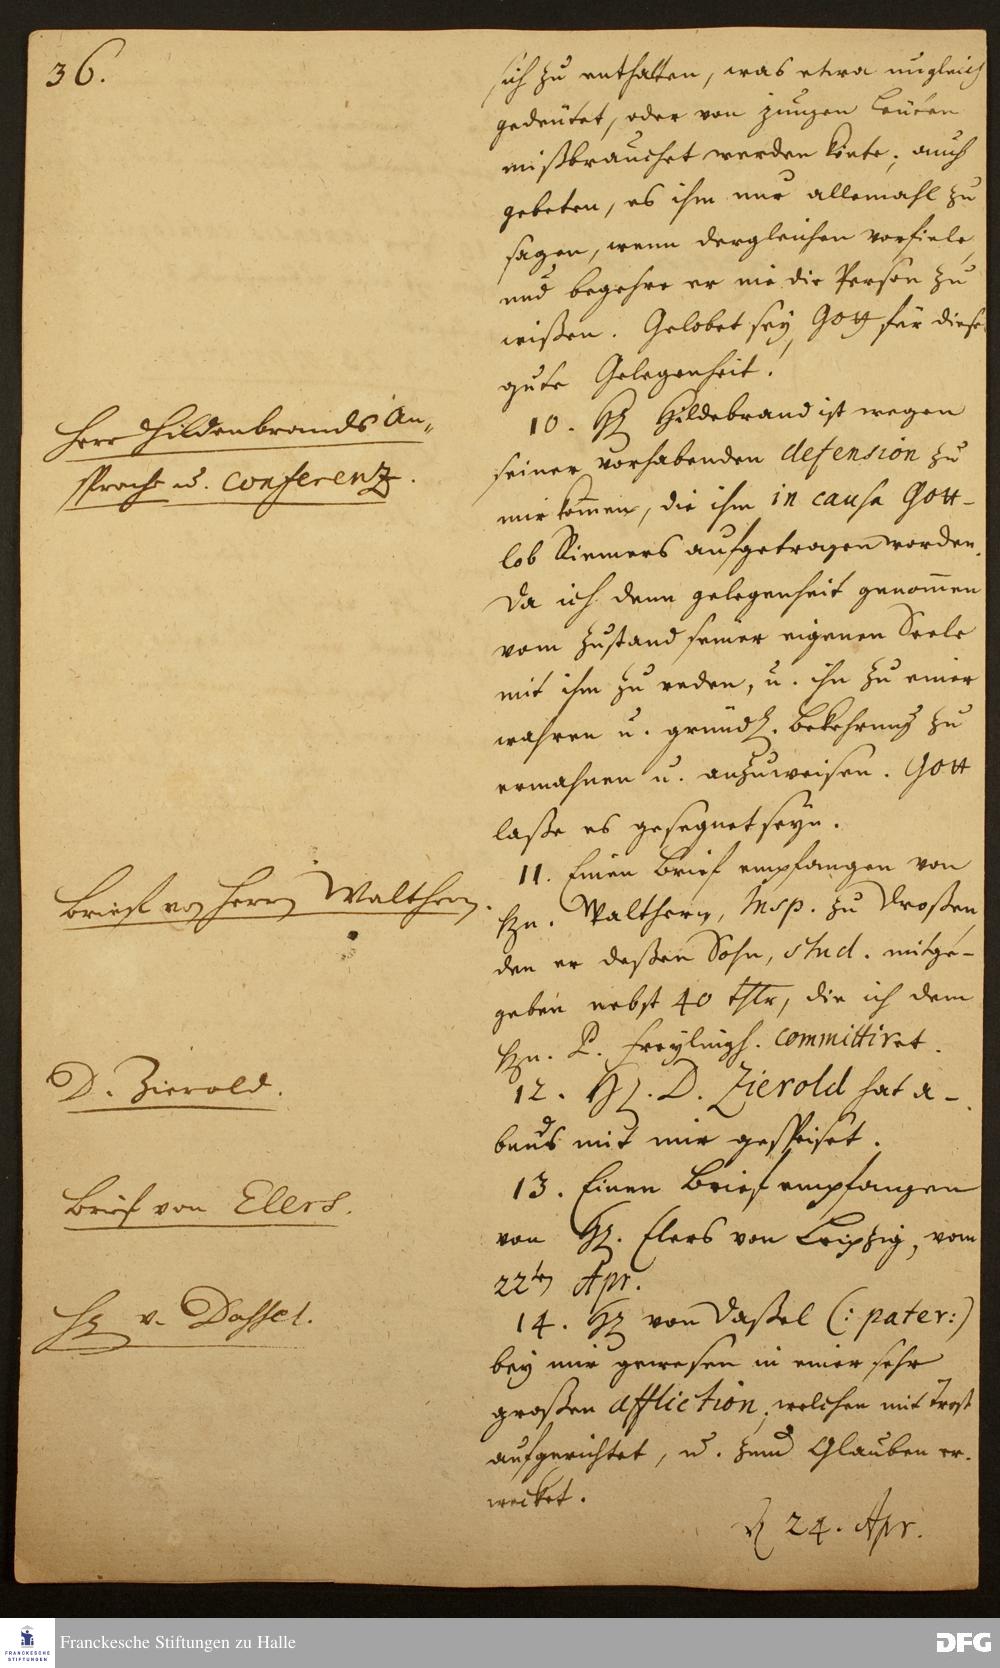 36.
sich zu enthalten, was etwa ungleich
gedeutet, oder von jungen Leuten
mißbrauchet werden könte; auch
gebeten, es ihm nur allemahl zu
sagen, wenn dergleichen vorfiele,
und begehre er nie die Person zu
wißen. Gelobet sey Gott für diese
gute Gelegenheit!
Herr Hildenbrands An-
sprache u. conferenz.
10. H. Hildebrand ist wegen
seiner vorhabenden defension zu
mir kom̅en, die ihm in causa Gott-
lob Riemers aufgetragen worden.
Da ich denn gelegenheit genom̅en
vom Zustand seiner eigenen Seele
mit ihm zu reden, u. ihn zu einer
wahren u. gründl. Bekehrung zu
ermahnen u. anzuweisen. Gott
laße es gesegnet seyn.
Brief von Herrn Walthern.
11. Einen Brief empfangen von
Hn. Walthern, Insp. zu Droßen,
den er deßen Sohn, stud. mitge-
geben nebst 40 thlr, die ich dem
Hn. P. Freylingh. committiret.
D. Zierold.
12. H. D. Zierold hat a-
bends mit mir gespeiset.
Brief von Elers.
13. Einen Brief empfangen
von H. Elers von Leipzig, vom
22ten Apr.
H v. Dassel.
14. H von Daßel (: pater:)
bey mir gewesen in einer sehr
großen affliction, welchen mit Trost
aufgerichtet, u. zum Glauben er-
wecket.
24. Apr.
FRANCKESCHE
STIFTUNGEN
Franckesche Stiftungen zu Halle
DFG